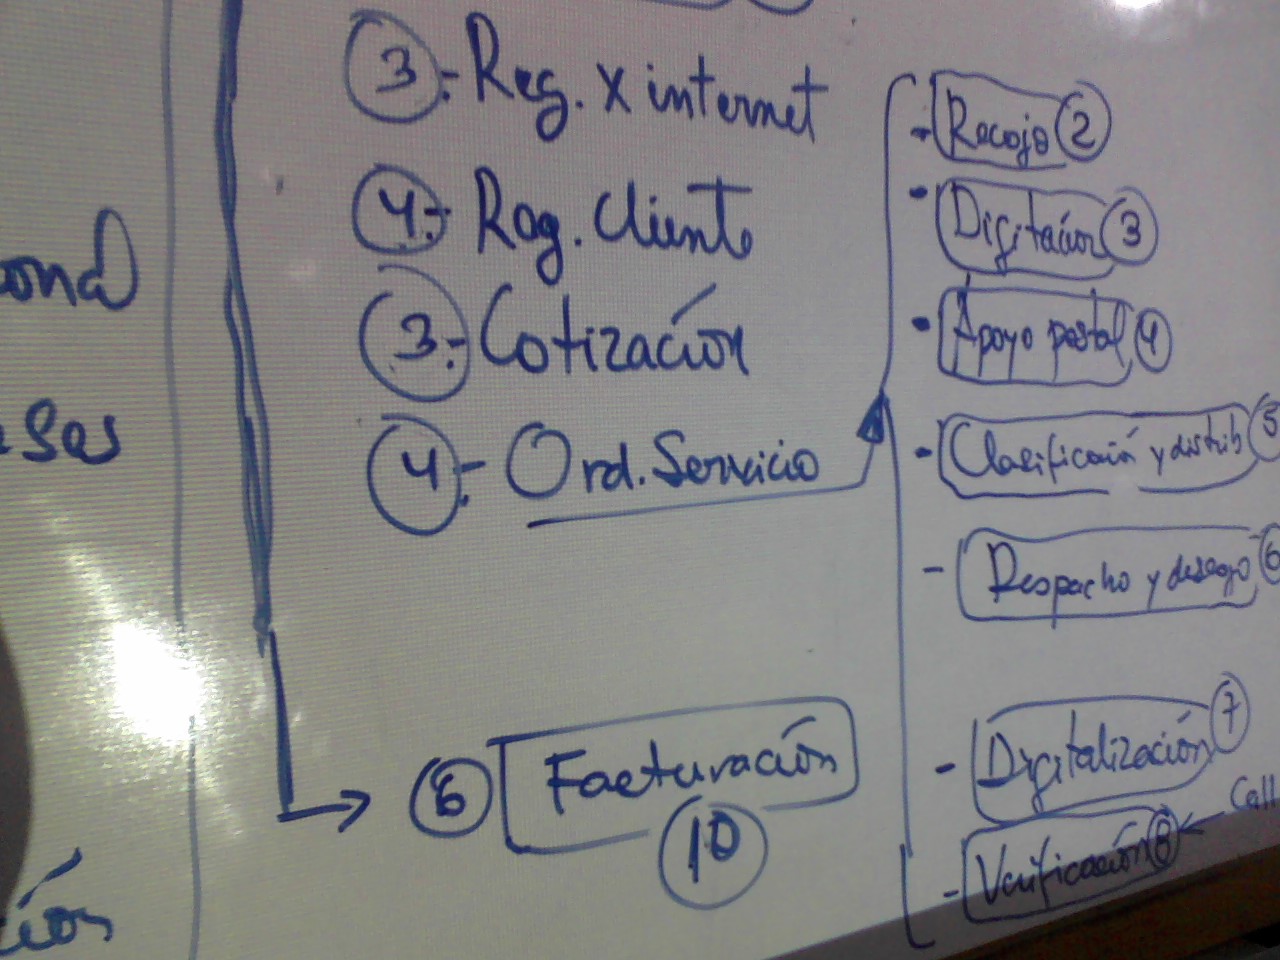 3.- Reg. x internet
4.- Reg. Cliente
3.- Cotización
4.- Ord. Servicio
6 Facturación
10
- Recojo 2
• Digitación 3
• Apoyo postal 4
- Clasificación y distrib 5
- Despacho y 6
- Digitalización 7
- Verificación 8 ← Call